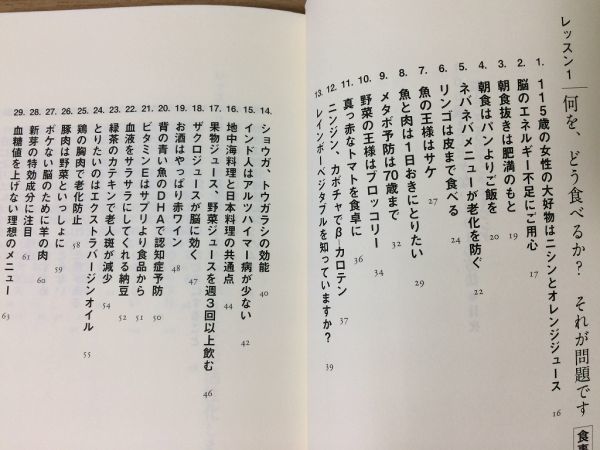 レッスン1 何を、どう食べるか? それが問題です
食事
1. 115歳の女性の大好物はニシンとオレンジジュース 16
2. 脳のエネルギー不足にご用心 17
3. 朝食抜きは肥満のもと 19
4. 朝食はパンよりご飯を 20
5. ネバネバメニューが老化を防ぐ 22
6. リンゴは皮まで食べる 24
7. 魚の王様はサケ 27
8. 魚と肉は1日おきにとりたい 29
9. メタボ予防は70歳まで 32
10. 野菜の王様はブロッコリー 34
11. 真っ赤なトマトを食卓に 36
12. ニンジン、カボチャでβ-カロテン 37
13. レインボーベジタブルを知っていますか? 39
14. ショウガ、トウガラシの効能 40
15. インド人はアルツハイマー病が少ない 42
16. 地中海料理と日本料理の共通点 44
17. 果物ジュース、野菜ジュースを週3回以上飲む 46
18. ザクロジュースが脳に効く 47
19. お酒はやっぱり赤ワイン 48
20. 背の青い魚のDHAで認知症予防 50
21. ビタミンEはサプリより食品から 51
22. 血液をサラサラにしてくれる納豆 52
23. 緑茶のカテキンで老人斑が減少 54
24. とりたいのはエクストラバージンオイル 55
25. 鶏の胸肉で老化防止 58
26. 豚肉は野菜といっしょに 59
27. ボケない脳のために羊の肉 60
28. 新芽の特効成分に注目 61
29. 血糖値を上げない理想のメニュー 63